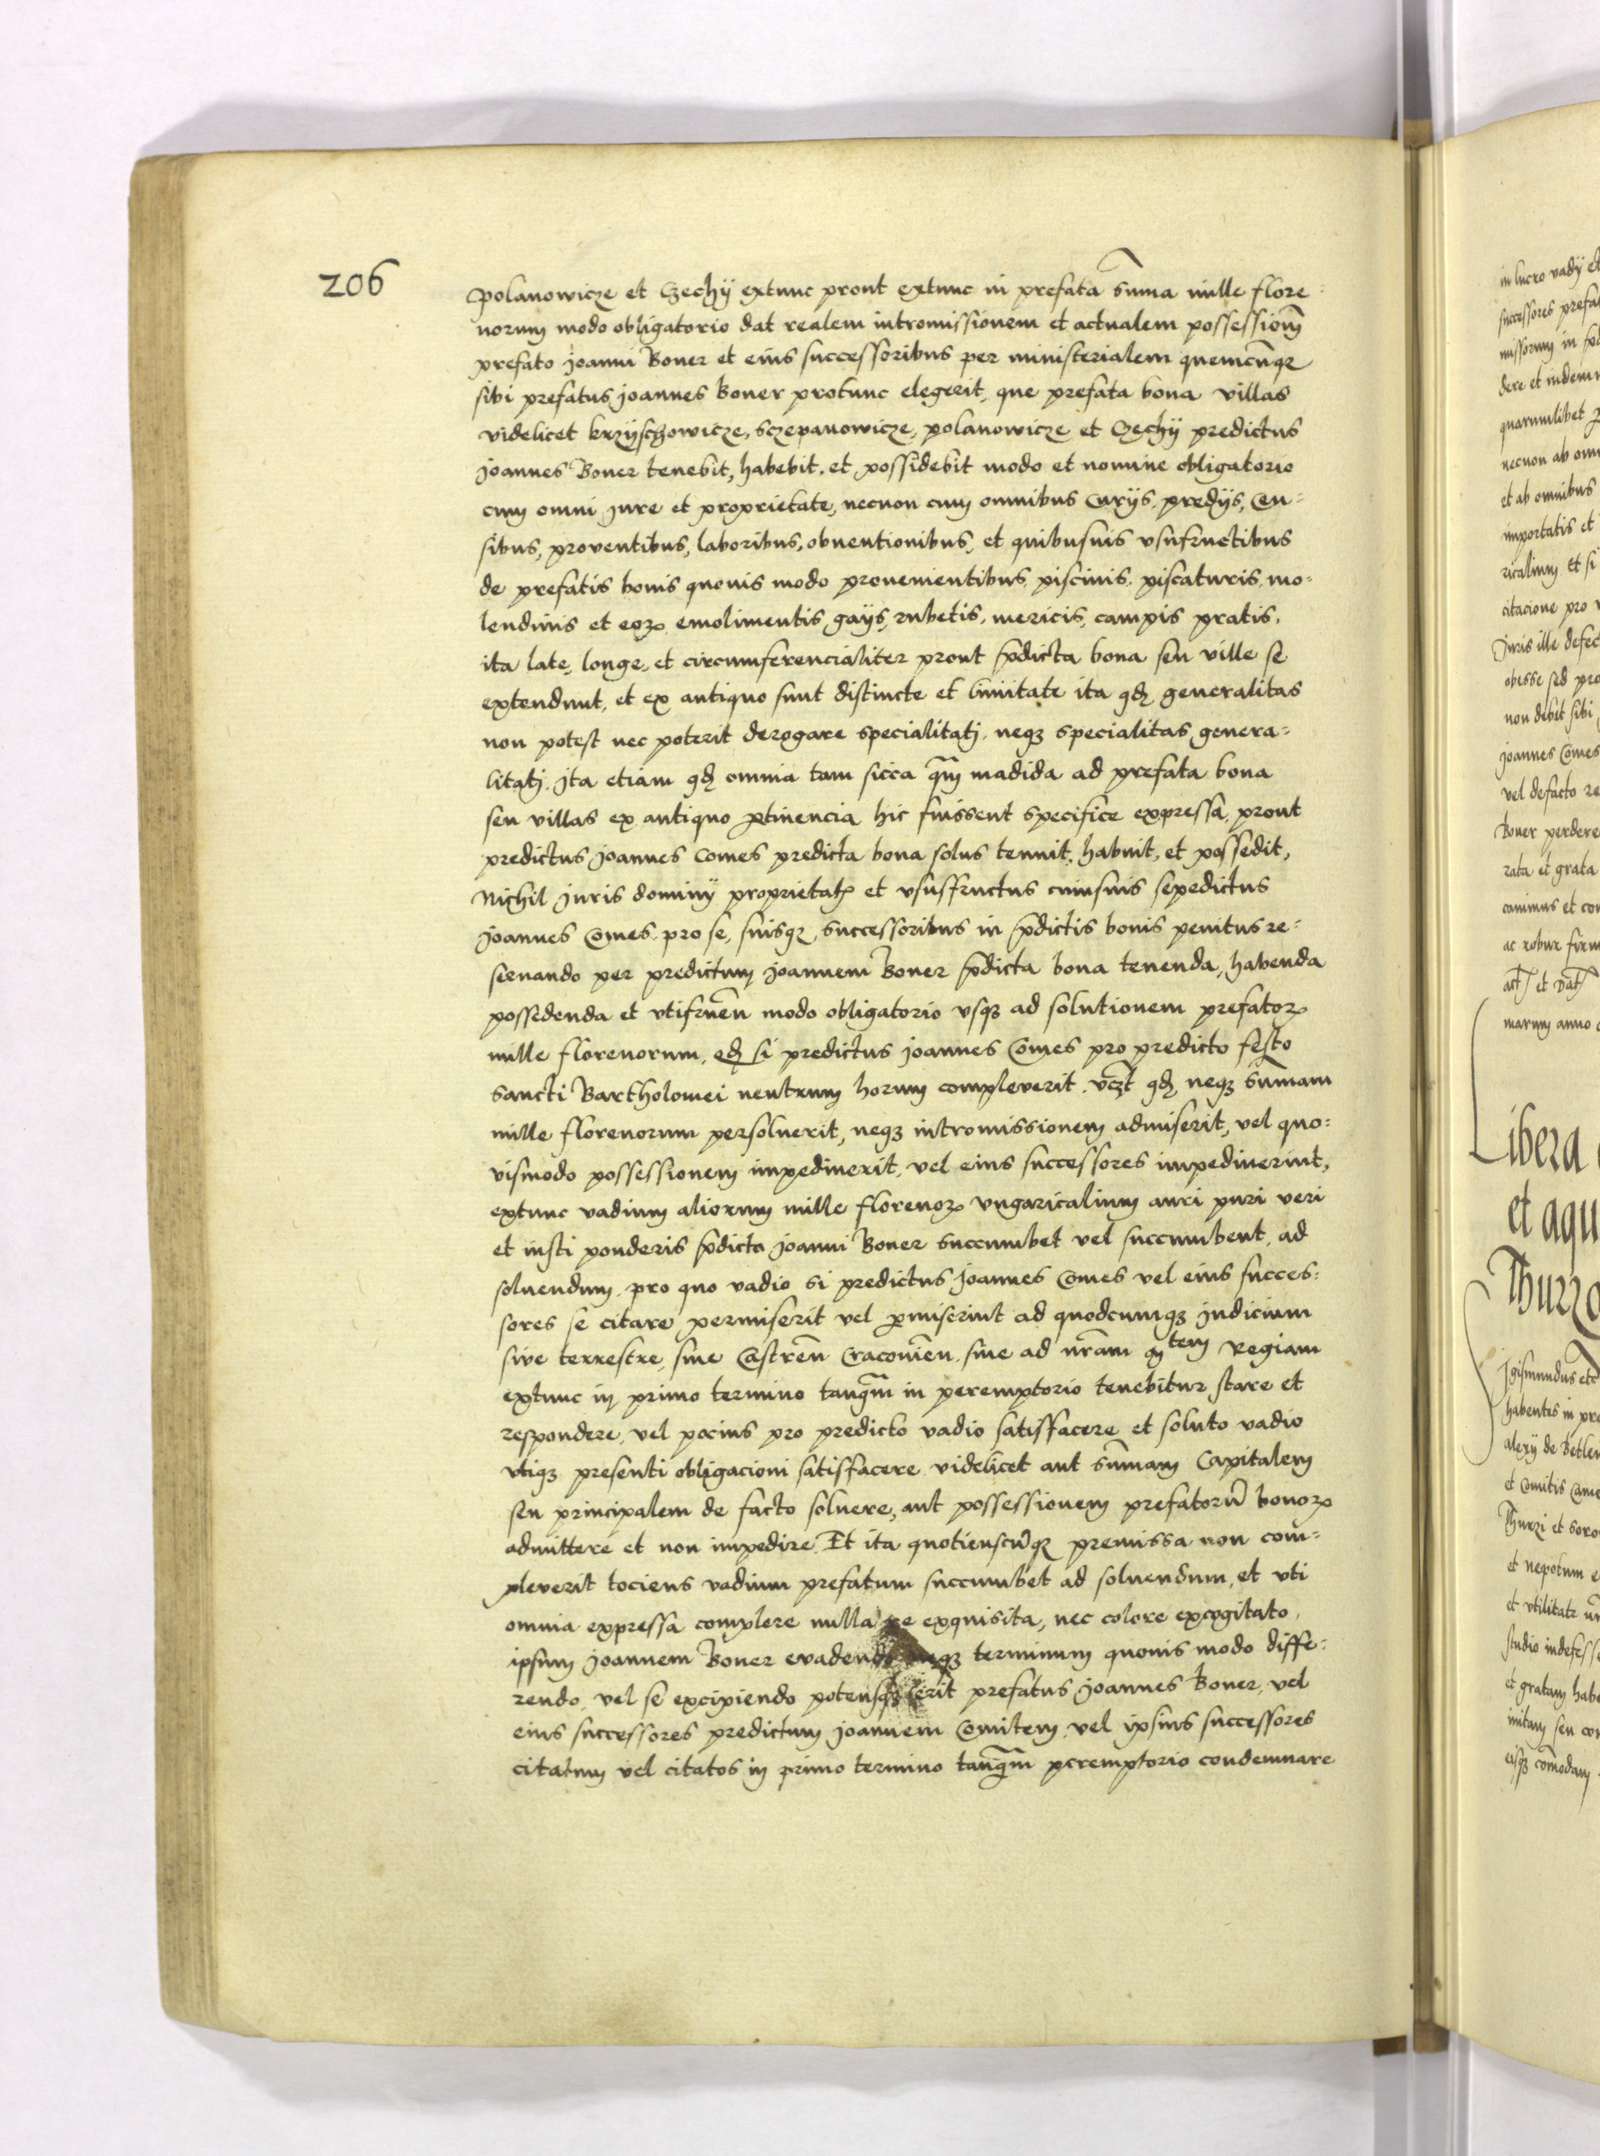 206
Polanowicze et Czechij extunc prout extunc in prefata suma mille flore
norum modo obligatorio dat realem intromissionem et actualem possessionē
prefato Joanni Boner et eius successoribus per ministerialem quemcūqꝫ
sibi prefatus Joannes Boner protunc elegerit, que prefata bona villas
videlicet krzyschowicze, sczepanowicze, polanowicze et Czechij predictus
Joannes Boner tenebit, habebit, et possidebit modo et nomine obligatorio
cum omni Jure et proprietate, necnon cum omnibus Curijs, predijs, Cen=
sibus, proventibus, laboribus, obuentionibus, et quibusuis vsufructibus
de prefatis bonis quouis modo prouenientibus, piscinis, piscaturis, mo=
lendinis et eoꝝ emolimentis, gaijs, rubetis, mericis, campis pratis,
ita late, longe, et circumferencialiter prout p̄dicta bona seu ville se
extendunt, et ex antiquo sunt distincte et limitate ita qđ generalitas
non potest nec poterit derogare specialitatj, neqꝫ specialitas genera=
litatj. Ita etiam qđ omnia tam sicca qm̄ madida ad prefata bona
seu villas ex antiquo ꝑtinencia hic fuissent specifice expressa, prout
predictus Joannes Comes predicta bona solus tenuit, habuit, et possedit,
Nichil Juris dominij proprietatꝭ et vsusfructus cuiusuis sepedictus
Joannes Comes pro se, suisqꝫ successoribus in p̄dictis bonis penitus re=
seruando per predictum Joannem Boner p̄dicta bona tenenda, habenda
possedenda et vtifruēn modo obligatorio vsqꝫ ad solutionem prefatoꝝ
mille florenorum, qđ si predictus Joannes Comes pro predicto festo
Sancti Bartholomei neutrum horum compleverit, vcꝫt qđ neqꝫ sūmam
mille florenorum persoluerit, neqꝫ intromissionem admiserit, vel quo=
vismodo possessionem impediuerit, vel eius successores impediuerint,
extunc vadium aliorum mille florenoꝝ vngaricalium auri puri veri
et iusti ponderis p̄dicto Joanni Boner succumbet vel succumbent, ad
soluendum, pro quo vadio si predictus Joannes Comes vel eius succes=
sores se citare permiserit vel ꝑmiserint ad quodcumqꝫ Judicium
sive terrestre, siue Castrēn Cracouiēn, siue ad nr̄am Mtem Regiam
extunc in primo termino tanqm̄ in peremptorio tenebitur stare et
respondere, vel pocius pro predicto vadio satisfacere et soluto vadio
vtiqꝫ presenti obligacioni satisfacere videlicet aut sūmam Capitalem
seu principalem de facto soluere, aut possessionem prefatorū bonoꝝ
admittere et non impedire. Et ita quotienscūqꝫ premissa non com=
pleverit tociens vadium prefatum succumbet ad soluendum, et vti
omnia expressa complere nulla re exquisita, nec colore excogitato,
ipsum Joannem Boner evadendo neqꝫ terminum quouis modo diffe=
rendo, vel se excipiendo potensqꝫ erit prefatus Joannes Boner, vel
eius successores predictum Joannem Comitem vel ipsius successores
citatum vel citatos in primo termino tanqm̄ peremptorio condemnare
in lucro vadij et
successores prefa
dere et indem
quarumlibet
necnon ab om
et ab omnibus
importatis et
ricalium et si
citacione pro
Juris ille defec
obesse sed pro
non debet sibi
Joannes Comes
vel defacto re
Boner perdere
rata et grata
ac robur firm
act et Dat
marum anno
Libera
et aqu
Thurzo
Igismundus etc
habentes in pre
alexij de Betlem
et Comitis Came
Thurzi et soro
et nepotum e
et vtilitate
studio indefesse
et gratam habe
mitam seu con
eisqꝫ cōmodam